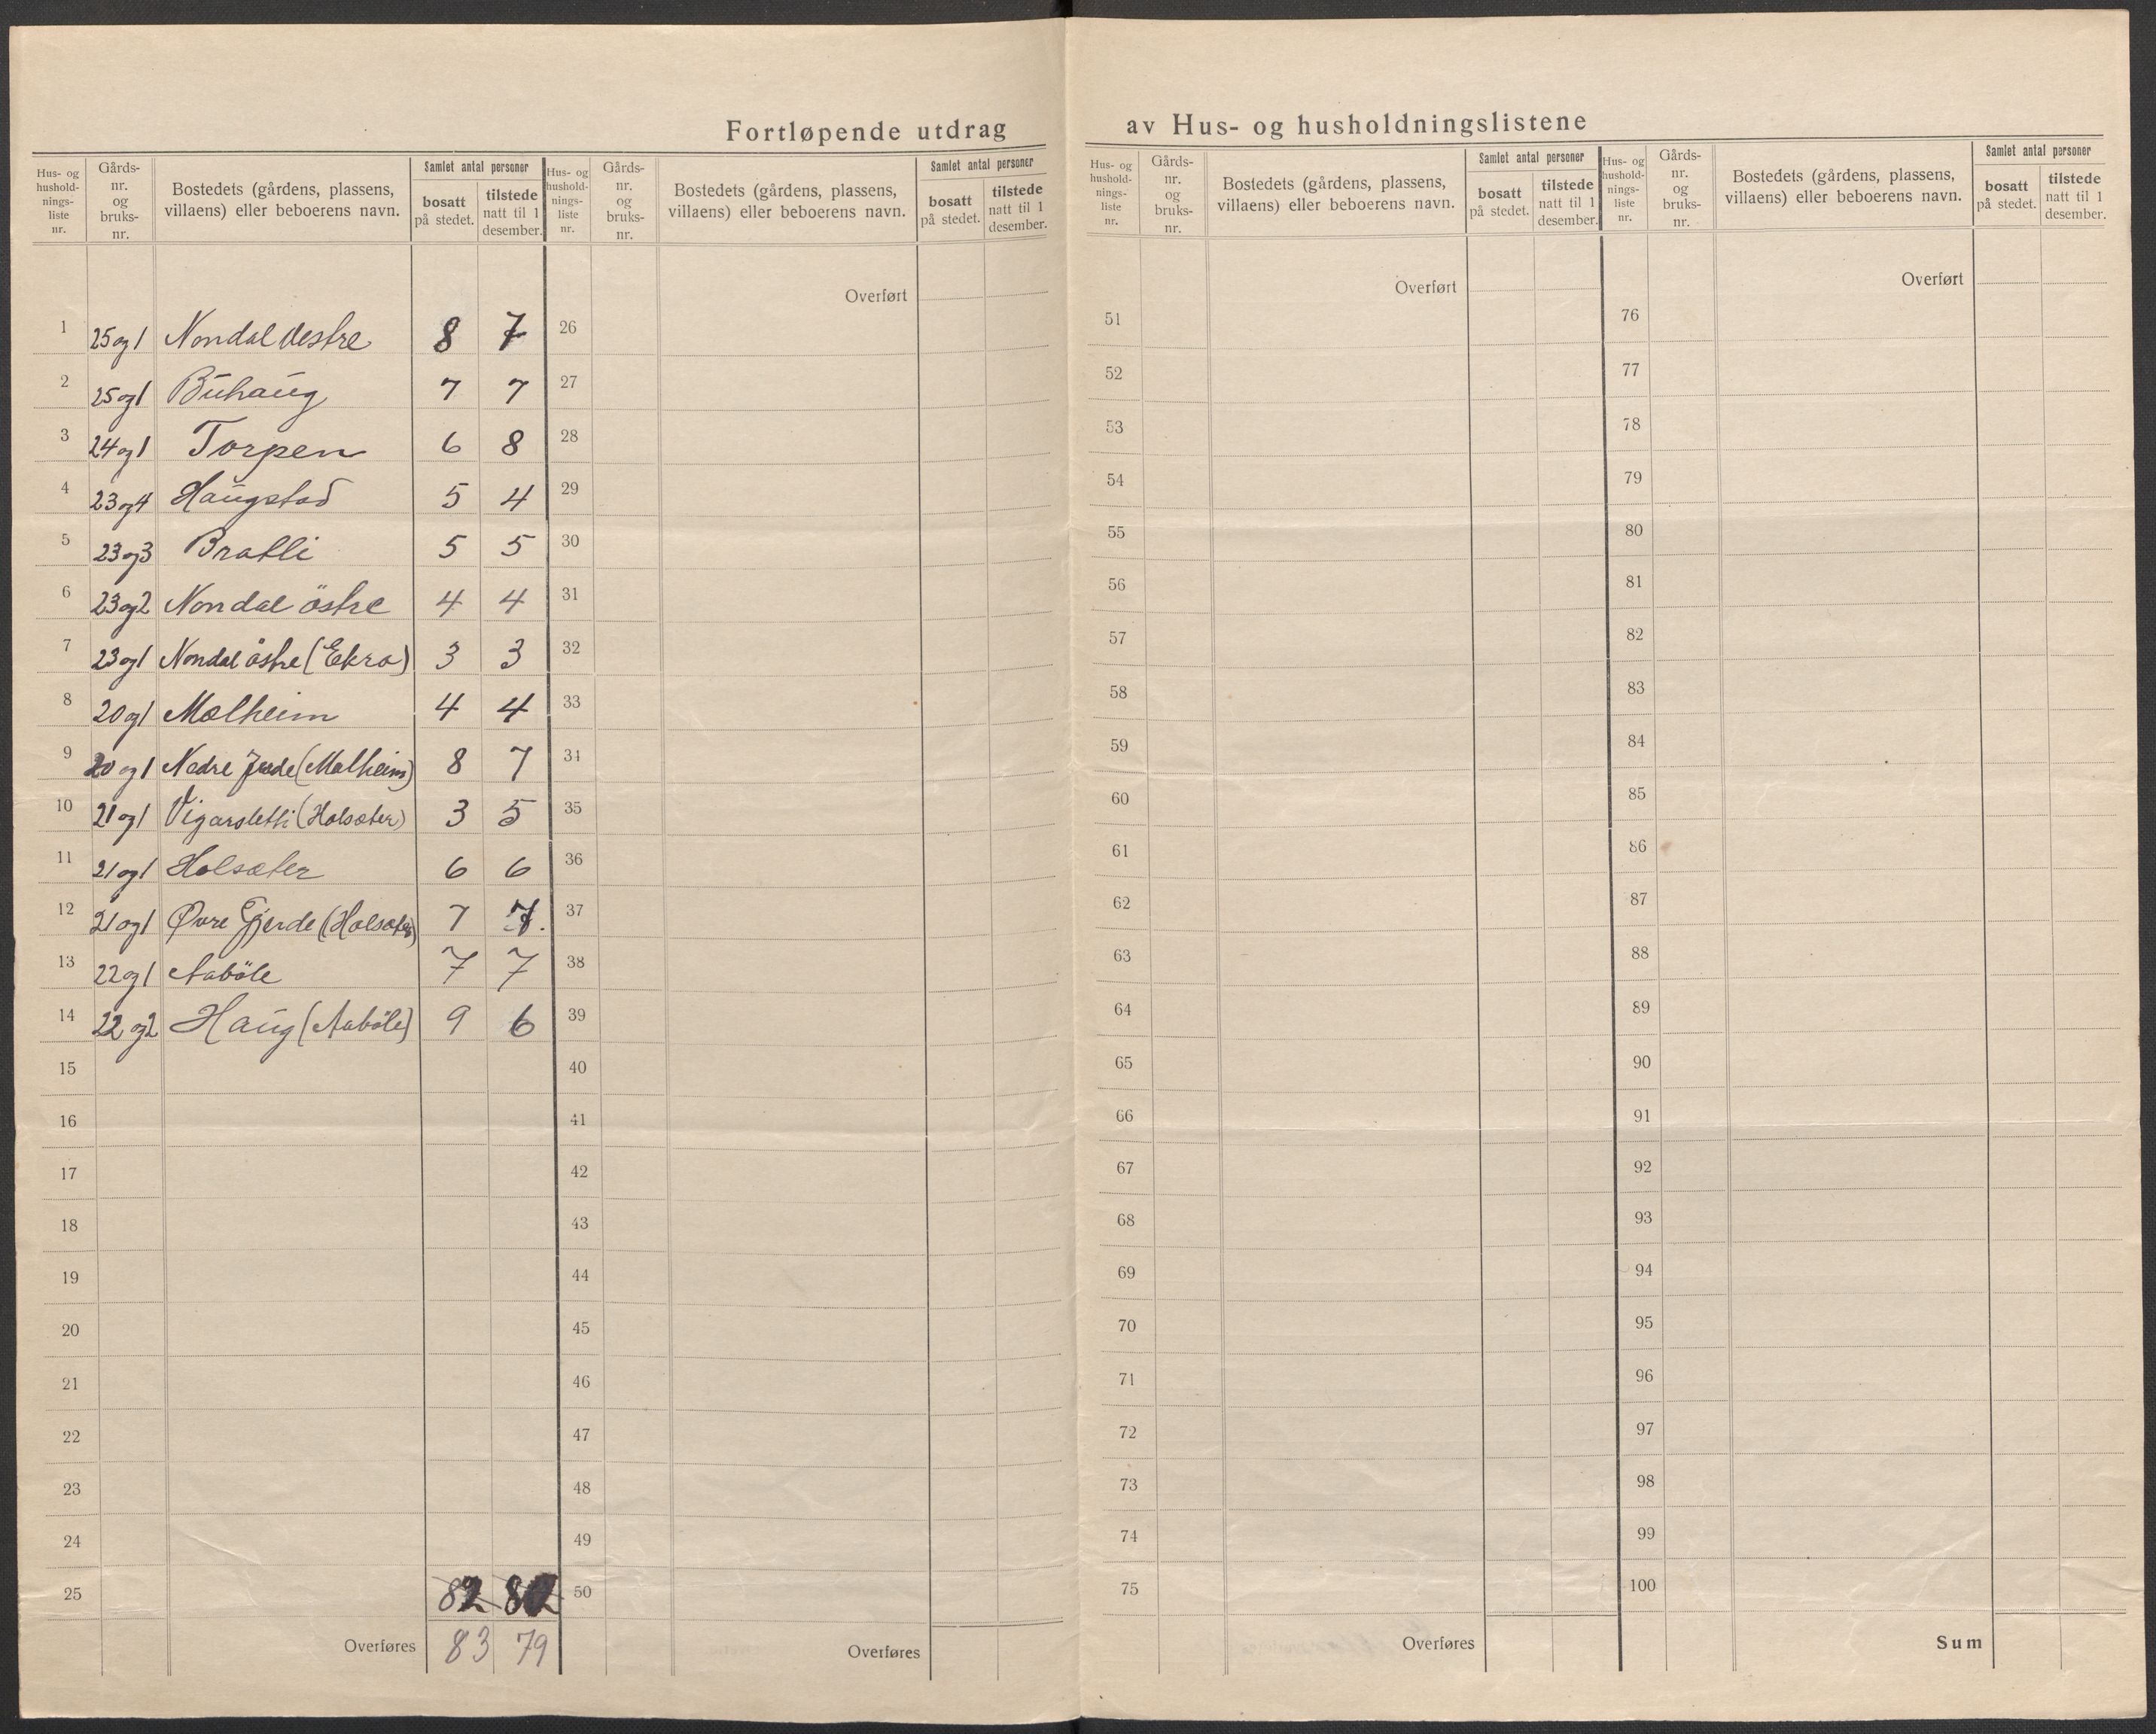 Fortløpende utdrag av Hus- og husholdningslistene
Hus- og hushold- nings- liste nr. | Gårds- nr. og bruks- nr. | Bostedets (gårdens, plassens, villaens) eller beboerens navn. | Samlet antal personer | bosatt på stedet. | tilstede natt til 1 desember.
Hus- og hushold- nings- liste nr. | Gårds- nr. og bruks- nr. | Bostedets (gårdens, plassens, villaens) eller beboerens navn. | Samlet antal personer | bosatt på stedet. | tilstede natt til 1 desember.
Hus- og hushold- nings- liste nr. | Gårds- nr. og bruks- nr. | Bostedets (gårdens, plassens, villaens) eller beboerens navn. | Samlet antal personer | bosatt på stedet. | tilstede natt til 1 desember.
Hus- og hushold- nings- liste nr. | Gårds- nr. og bruks- nr. | Bostedets (gårdens, plassens, villaens) eller beboerens navn. | Samlet antal personer | bosatt på stedet. | tilstede natt til 1 desember.
Overført Overført Overført
1 25 og 1 Nondal vestre 8 7 26 51 76
2 25 og 1 Buhaug 7 7 27 52 77
3 24 og 1 Torpen 6 8 28 53 78
4 23 og 4 Haugstad 5 4 29 54 79
5 23 og 3 Bratli 5 5 30 55 80
6 23 og 2 Nondal östre 4 4 31 56 81
7 23 og 1 Nondal östre (Ekra) 3 3 32 57 82
8 20 og 1 Mælheim 4 4 33 58 83
9 20 og 1 Nedre (Mælheim) 8 7 34 59 84
10 21 og 1 Vigarsletti (Holsæter) 3 5 35 60 85
11 21 og 1 Holsæter 6 6 36 61 86
12 21 og 1 Øvre Gjerde (Holsæter) 7 7. 37 62 87
13 22 og 1 Aaböle 7 7 38 63 88
14 22 og 2 Haug (Aaböle) 9 6 39 64 89
15 40 65 90
16 41 66 91
17 42 67 92
18 43 68 93
19 44 69 94
20 45 70 95
21 46 71 96
22 47 72 97
23 48 73 98
24 49 74 99
25 82 80 50 75 100
Overføres 83 79 Overføres Overføres Sum